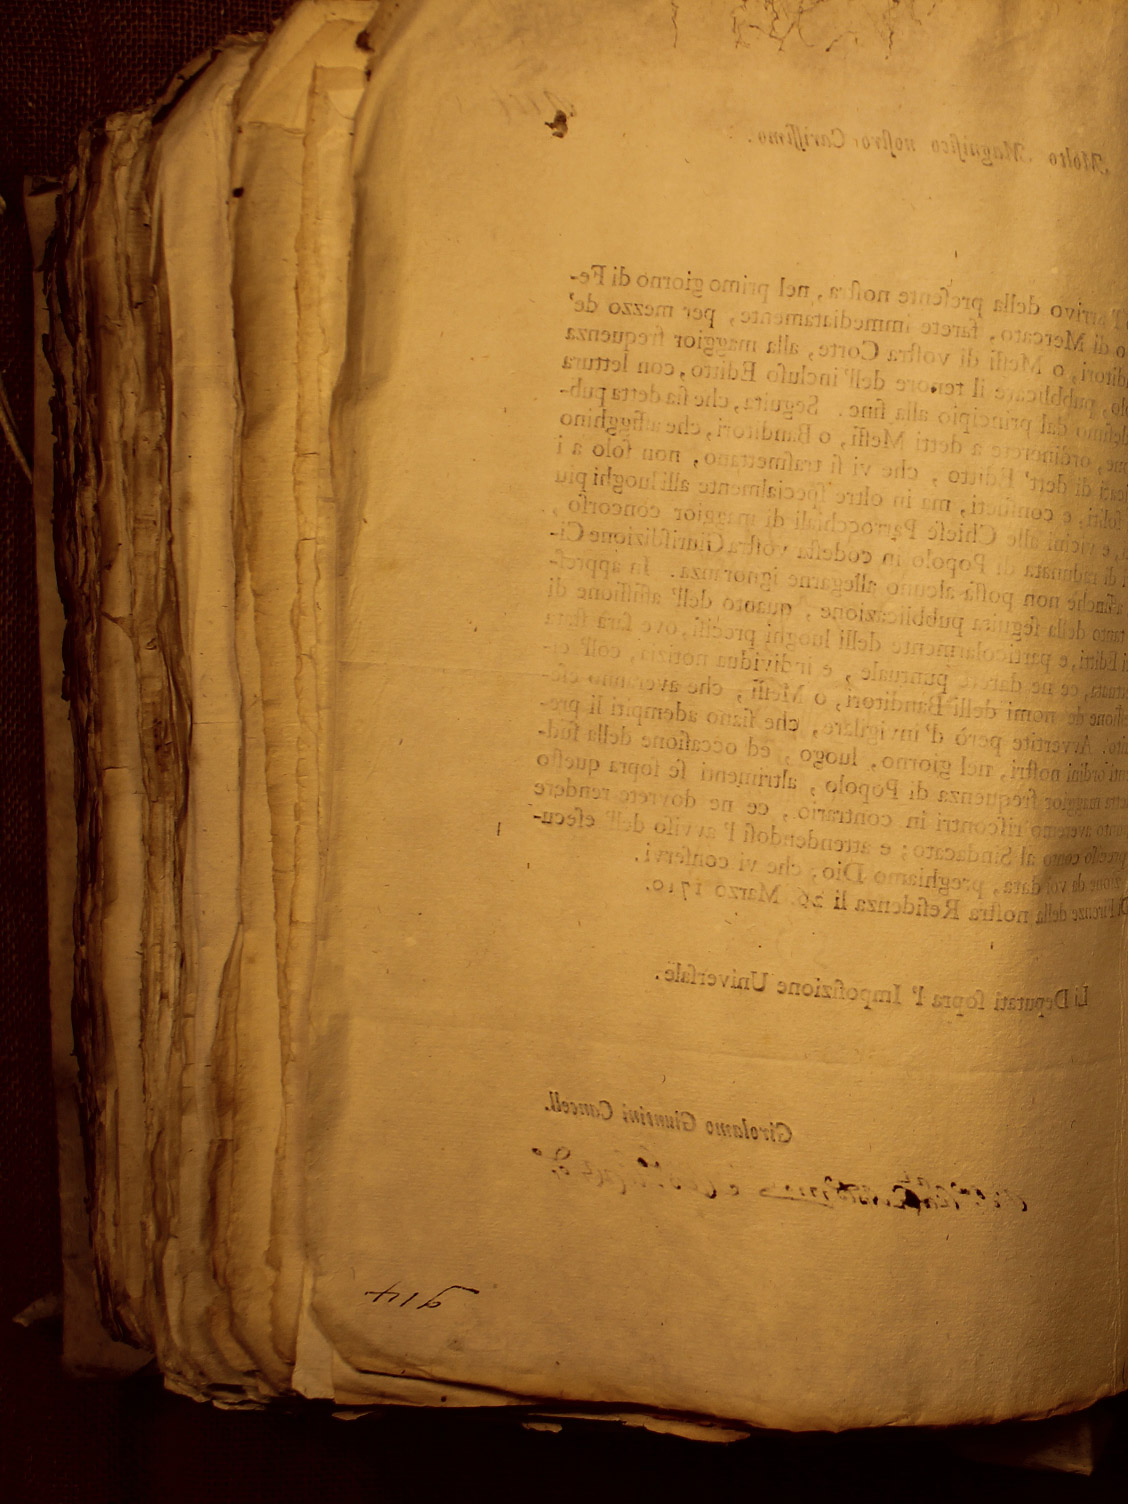 Molto Magnifico nostro Carissimo.
l'arrivo della presente nostra, nel primo giorno di Fe-
o di Mercato, farete immediatamente, per mezzo de'
ditori, o Messi di vostra Corte, alla maggior frequenza
olo, pubblicare il tenore dell'incluso Editto, con lettura
desimo dal principio alla fine. Seguita, che sia detta pub-
ne, ordinerete a detti Messi, o Banditori, che affigghino
di dett' Editto, che vi si trasmettano, non solo a i
soliti, e consueti, ma in oltre specialmente all i luoghi più
, e vicini alle Chiese Parrocchiali di maggior concorso,
di radunata di Popolo in codesta vostra Giurisdizione Ci-
affinche non possa alcuno allegarne ignoranza. In appres-
tanto della seguita pubblicazione, quanto dell' affissione di
i Editti, e particolarmente delli luoghi precisi, ove sarà stata
, ce ne darete puntuale, e individua notizia, coll' ef-
de' nomi delli Banditori, o Messi, che averanno ese-
. Avvertite però d'invigilare, che siano adempiti li pre-
ordini nostri, nel giorno, luogo, ed occasione della sud-
maggior frequenza di Popolo, altrimenti se sopra questo
averemo riscontri in contrario, ce ne dovrete rendere
conto al Sindacato; e attendendosi l'avviso dell' esecu-
zione da voi data, preghiamo Dio, che vi conservi.
Di Firenze della nostra Residenza li 26. Marzo 1710.
Li Deputati sopra l' Imposizione Universale.
Girolamo Giuntini Cancell.
914